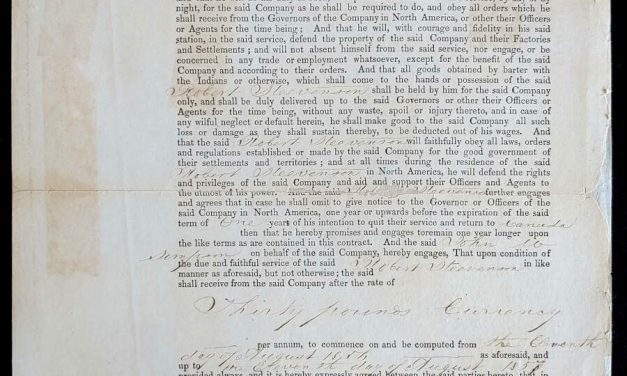 night, for the said Company as he shall be required to do, and obey all orders which he
shall receive from the Governors of the Company in North America, or other their Officers
or Agents for the time being; And that he will, with courage and fidelity in his said
station, in the said service, defend the property of the said Company and their Factories
and Settlements; and will not absent himself from the said service, nor engage, or be
concerned in any trade or employment whatsoever, except for the benefit of the said
Company and according to their orders. And that all goods obtained by barter with
the Indians or otherwise, which shall come to the hands or possession of the said
Robert Steevenson shall be held by him for the said Company
only, and shall be duly delivered up to the said Governors or other their Officers or
Agents for the time being, without any waste, spoil or injury thereto, and in case of
any wilful neglect or default herein, he shall make good to the said Company all such
loss or damage as they shall sustain thereby, to be deducted out of his wages. And
that the said Robert Steevenson will faithfully obey all laws, orders
and regulations established or made by the said Company for the good government of
their settlements and territories; and at all times during the residence of the said
Robert Steevenson in North America, he will defend the rights
and privileges of the said Company and aid and support their Officers and Agents to
the utmost of his power. And the said Robert Steevenson further engages
and agrees that in case he shall omit to give notice to the Governor or Officers of the
said Company in North America, one year or upwards before the expiration of the said
term of One years of his intention to quit their service and return to Canada
then that he hereby promises and engages toremain one year longer upon
the like terms as are contained in this contract. And the said John
Simpson on behalf of the said Company, hereby engages, That upon condition of
the due and faithful service of the said Robert Steevenson in like
manner as aforesaid, but not otherwise; the said
shall receive from the said Company after the rate of
Thirty pounds Currency
per annum, to commence on and be computed from the
day of August as aforesaid, and
up to day of August 1857
provided always, and it is hereby expressly agreed between the said parties hereto, that in